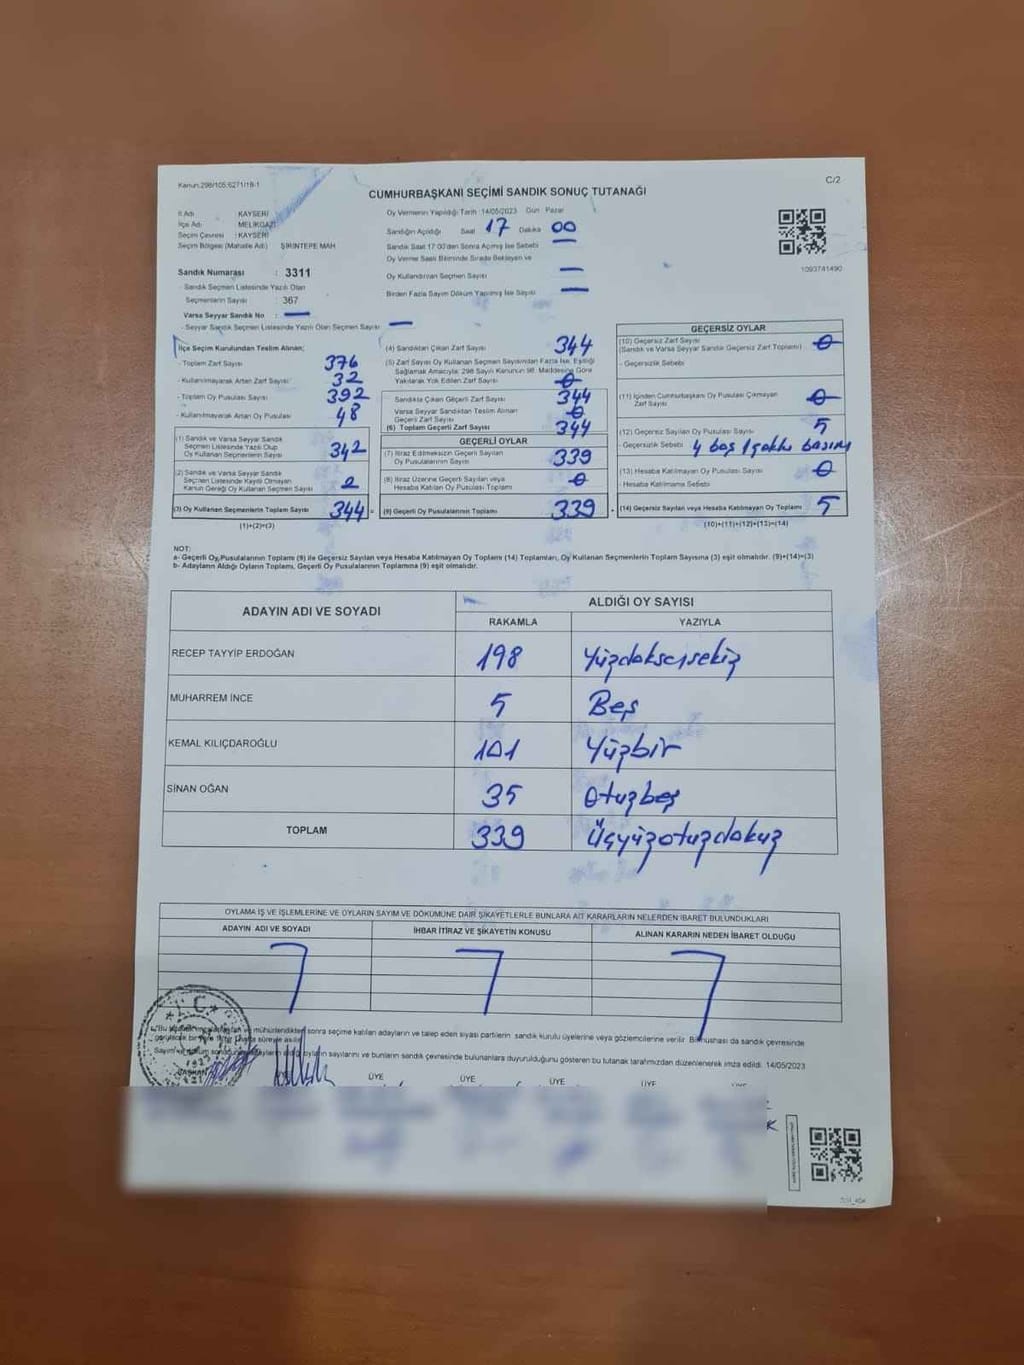 Kanun:298/105;6271/18-1
C/2
CUMHURBAŞKANI SEÇİMİ SANDIK SONUÇ TUTANAĞI
İl Adı KAYSERİ
İlçe Adı MELİKGAZİ
Seçim Çevresi : KAYSERİ
Seçim Bölgesi (Mahalle Adı) ŞİRİNTEPE MAH
Oy Vermenin Yapıldığı Tarih :14/05/2023 Gün : Pazar
Sandığın Açıldığı Saat 17 Dakika 00
Sandık Saat 17:00'den Sonra Açılmış İse Sebebi
Oy Verme Saati Bitiminde Sırada Bekleyen ve
Oy Kullandırılan Seçmen Sayısı —
Birden Fazla Sayım Döküm Yapılmış İse Sayısı —
1093741490
Sandık Numarası : 3311
- Sandık Seçmen Listesinde Yazılı Olan
Seçmenlerin Sayısı : 367
Varsa Seyyar Sandık No : —
- Seyyar Sandık Seçmen Listesinde Yazılı Olan Seçmen Sayısı —
İlçe Seçim Kurulundan Teslim Alınan;
- Toplam Zarf Sayısı 376
- Kullanılmayarak Artan Zarf Sayısı 32
- Toplam Oy Pusulası Sayısı 392
- Kullanılmayarak Artan Oy Pusulası 48
(1) Sandık ve Varsa Seyyar Sandık
Seçmen Listesinde Yazılı Olup
Oy Kullanan Seçmenlerin Sayısı 342
(2) Sandık ve Varsa Seyyar Sandık
Seçmen Listesinde Kayıtlı Olmayan
Kanun Gereği Oy Kullanan Seçmen Sayısı 2
(3) Oy Kullanan Seçmenlerin Toplam Sayısı 344 =
(1)+(2)=(3)
(4) Sandıktan Çıkan Zarf Sayısı 344
(5) Zarf Sayısı Oy Kullanan Seçmen Sayısından Fazla İse, Eşitliği
Sağlamak Amacıyla; 298 Sayılı Kanunun 98. Maddesine Göre
Yakılarak Yok Edilen Zarf Sayısı 0
Sandıkta Çıkan Geçerli Zarf Sayısı 344
Varsa Seyyar Sandıktan Teslim Alınan
Geçerli Zarf Sayısı 0
(6) Toplam Geçerli Zarf Sayısı 344
GEÇERLİ OYLAR
(7) İtiraz Edilmeksizin Geçerli Sayılan
Oy Pusulalarının Sayısı 339
(8) İtiraz Üzerine Geçerli Sayılan veya
Hesaba Katılan Oy Pusulası Toplamı 0
(9) Geçerli Oy Pusulalarının Toplamı 339 +
GEÇERSİZ OYLAR
(10) Geçersiz Zarf Sayısı
(Sandık ve Varsa Seyyar Sandık Geçersiz Zarf Toplamı) 0
- Geçersizlik Sebebi
(11) İçinden Cumhurbaşkanı Oy Pusulası Çıkmayan
Zarf Sayısı 0
(12) Geçersiz Sayılan Oy Pusulası Sayısı 5
- Geçersizlik Sebebi 4 boş 1 çoklu basım
(13) Hesaba Katılmayan Oy Pusulası Sayısı 0
- Hesaba Katılmama Sebebi
(14) Geçersiz Sayılan veya Hesaba Katılmayan Oy Toplamı 5
(10)+(11)+(12)+(13)=(14)
NOT:
a- Geçerli Oy Pusulalarının Toplamı (9) ile Geçersiz Sayılan veya Hesaba Katılmayan Oy Toplamı (14) Toplamları, Oy Kullanan Seçmenlerin Toplam Sayısına (3) eşit olmalıdır. (9)+(14)=(3)
b- Adayların Aldığı Oyların Toplamı, Geçerli Oy Pusulalarının Toplamına (9) eşit olmalıdır.
ADAYIN ADI VE SOYADI
ALDIĞI OY SAYISI
RAKAMLA YAZIYLA
RECEP TAYYİP ERDOĞAN 198 Yüzdoksensekiz
MUHARREM İNCE 5 Beş
KEMAL KILIÇDAROĞLU 101 Yüzbir
SİNAN OĞAN 35 Otuzbeş
TOPLAM 339 Üçyüzotuzdokuz
OYLAMA İŞ VE İŞLEMLERİNE VE OYLARIN SAYIM VE DÖKÜMÜNE DAİR ŞİKAYETLERLE BUNLARA AİT KARARLARIN NELERDEN İBARET BULUNDUKLARI
ADAYIN ADI VE SOYADI İHBAR İTİRAZ VE ŞİKAYETİN KONUSU ALINAN KARARIN NEDEN İBARET OLDUĞU
sonra seçime katılan adayların ve talep eden siyasi partilerin sandık kurulu üyelerine veya gözlemcilerine verilir. Bir nüshası da sandık çevresinde
oyların sayılarını ve bunların sandık çevresinde bulunanlara duyurulduğunu gösteren bu tutanak tarafımızdan düzenlenerek imza edildi. 14/05/2023
ÜYE ÜYE ÜYE ÜYE